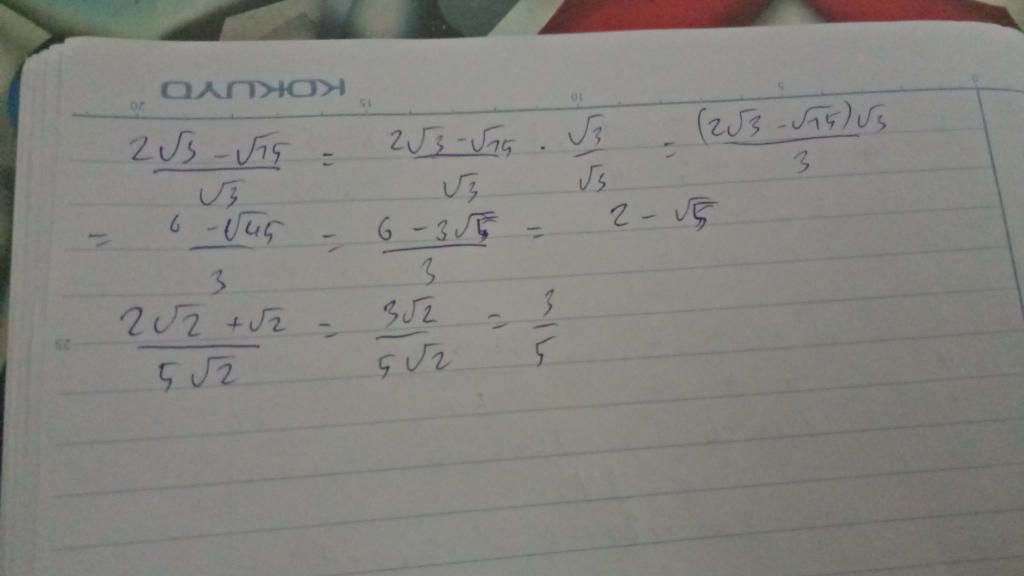 KOKUYO
20 15 10 5 0
(2√3 - √15)/√3 = (2√3 - √15)/√3 · √3/√3 = ((2√3 - √15)√3)/3
= (6 - √45)/3 = (6 - 3√5)/3 = 2 - √5
(2√2 + √2)/(5√2) = (3√2)/(5√2) = 3/5
25